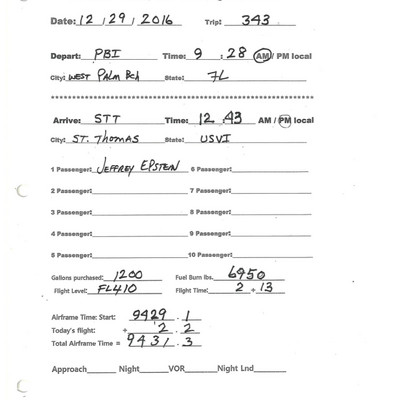 Date: 12 / 29 / 2016 Trip: 343
Depart: PBI Time: 9 : 28 AM / PM local
City: WEST PALM BCH State: FL
Arrive: STT Time: 12 : 43 AM / PM local
City: ST. THOMAS State: USVI
1 Passenger: JEFFREY EPSTEIN 6 Passenger:
2 Passenger: 7 Passenger:
3 Passenger: 8 Passenger:
4 Passenger: 9 Passenger:
5 Passenger: 10 Passenger:
Gallons purchased: 1200 Fuel Burn lbs. 6950
Flight Level: FL410 Flight Time: 2 + 13
Airframe Time: Start: 9429 . 1
Today's flight: + 2 . 2
Total Airframe Time = 9431 . 3
Approach Night VOR Night Lnd